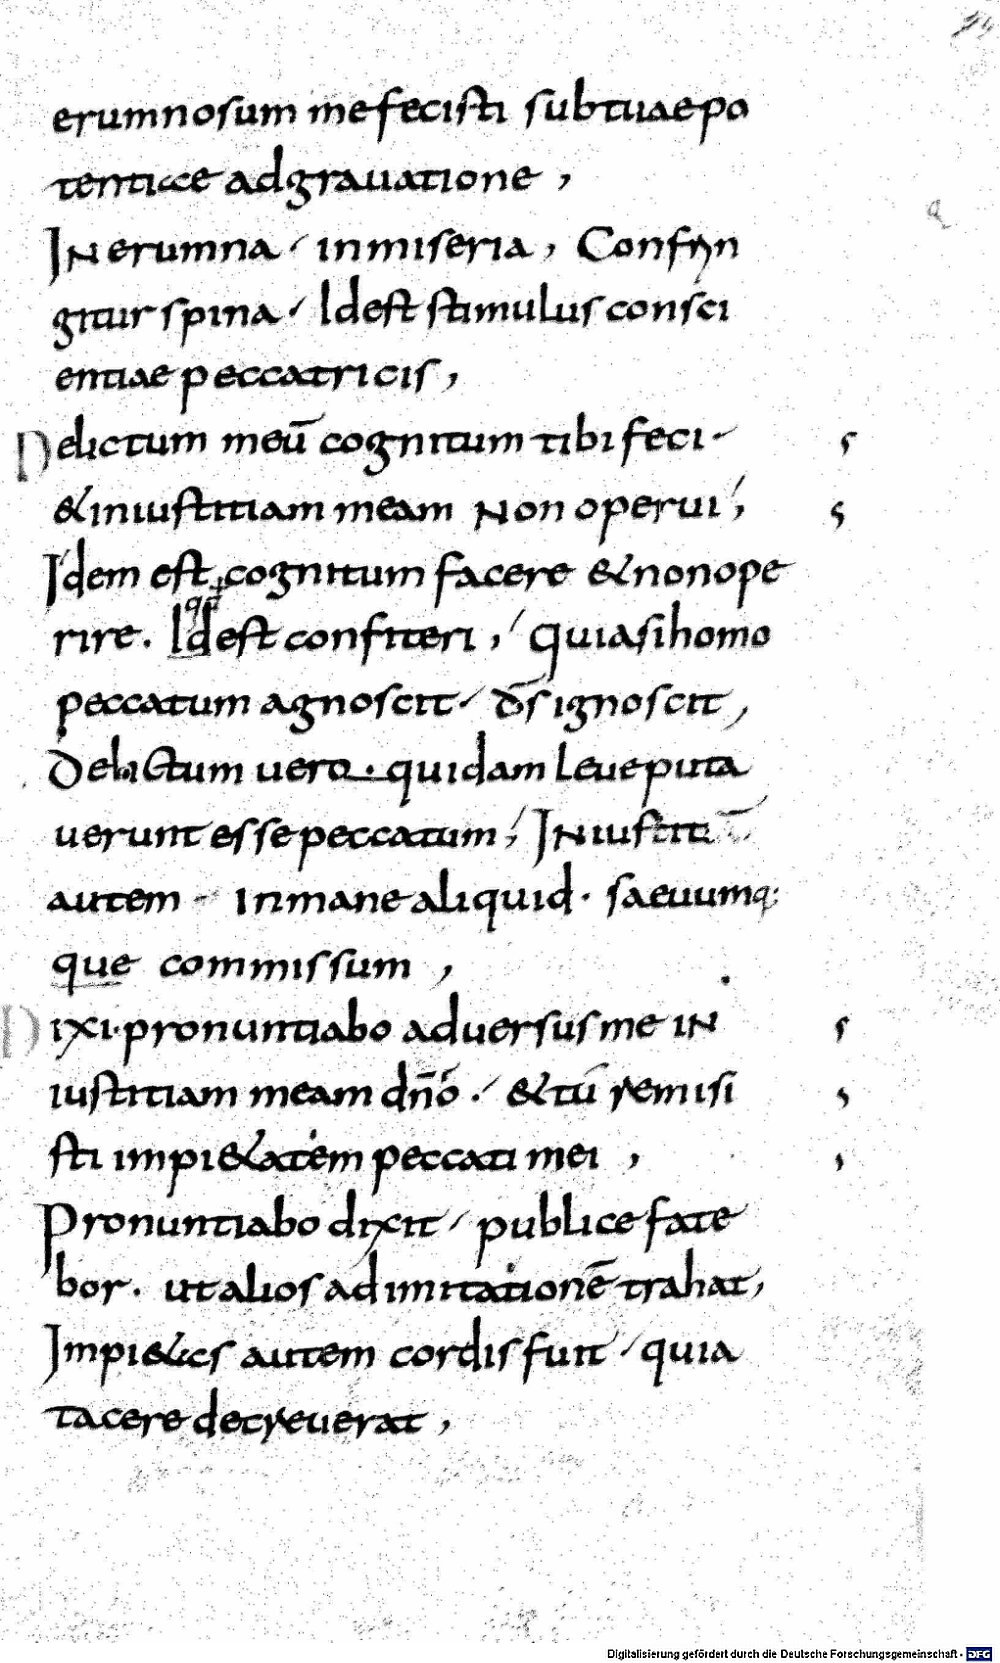 erumnosum me fecisti sub tuae po
tentiae adgrauatione ,
IN erumna / in miseria , Confrin
gitur spina / Id est stimulus consci
entiae peccatricis ,
Delictum meū cognitum tibi feci ·
& iniustitiam meam Non operui ,
Idem est cognitum facere & non ope
rire . Id est confiteri , quia si homo
peccatum agnoscit / d̄s ignoscit ,
Delictum uero · quidam leue puta
uerunt esse peccatum , INiustiti
autem - inmane aliquid · saeuumq:
que commissum ,
Dixi · pronuntiabo aduersus me IN
iustitiam meam dn̄o · / & tū remisi
sti impi&atem peccati mei ,
Pronuntiabo dixit / publice fate
bor . ut alios ad imitationē trahat ,
Impi&as autem cordis fuit / quia
tacere decreuerat ,
Digitalisierung gefördert durch die Deutsche Forschungsgemeinschaft - DFG